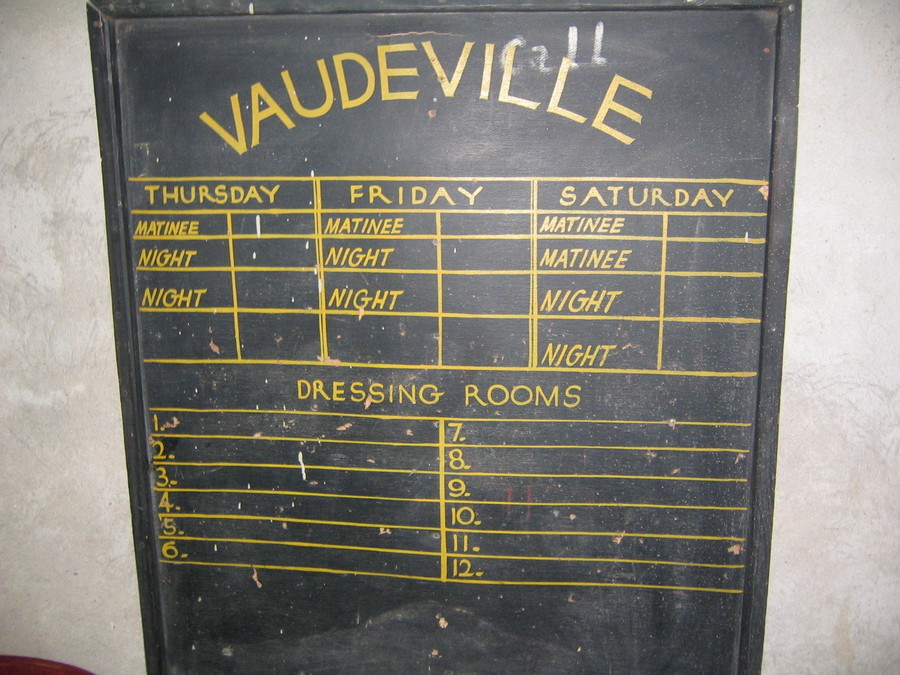 Call
VAUDEVILLE
THURSDAY FRIDAY SATURDAY
MATINEE MATINEE MATINEE
NIGHT NIGHT MATINEE
NIGHT NIGHT NIGHT
NIGHT
DRESSING ROOMS
1. 7.
2. 8.
3. 9.
4. 10.
5. 11.
6. 12.